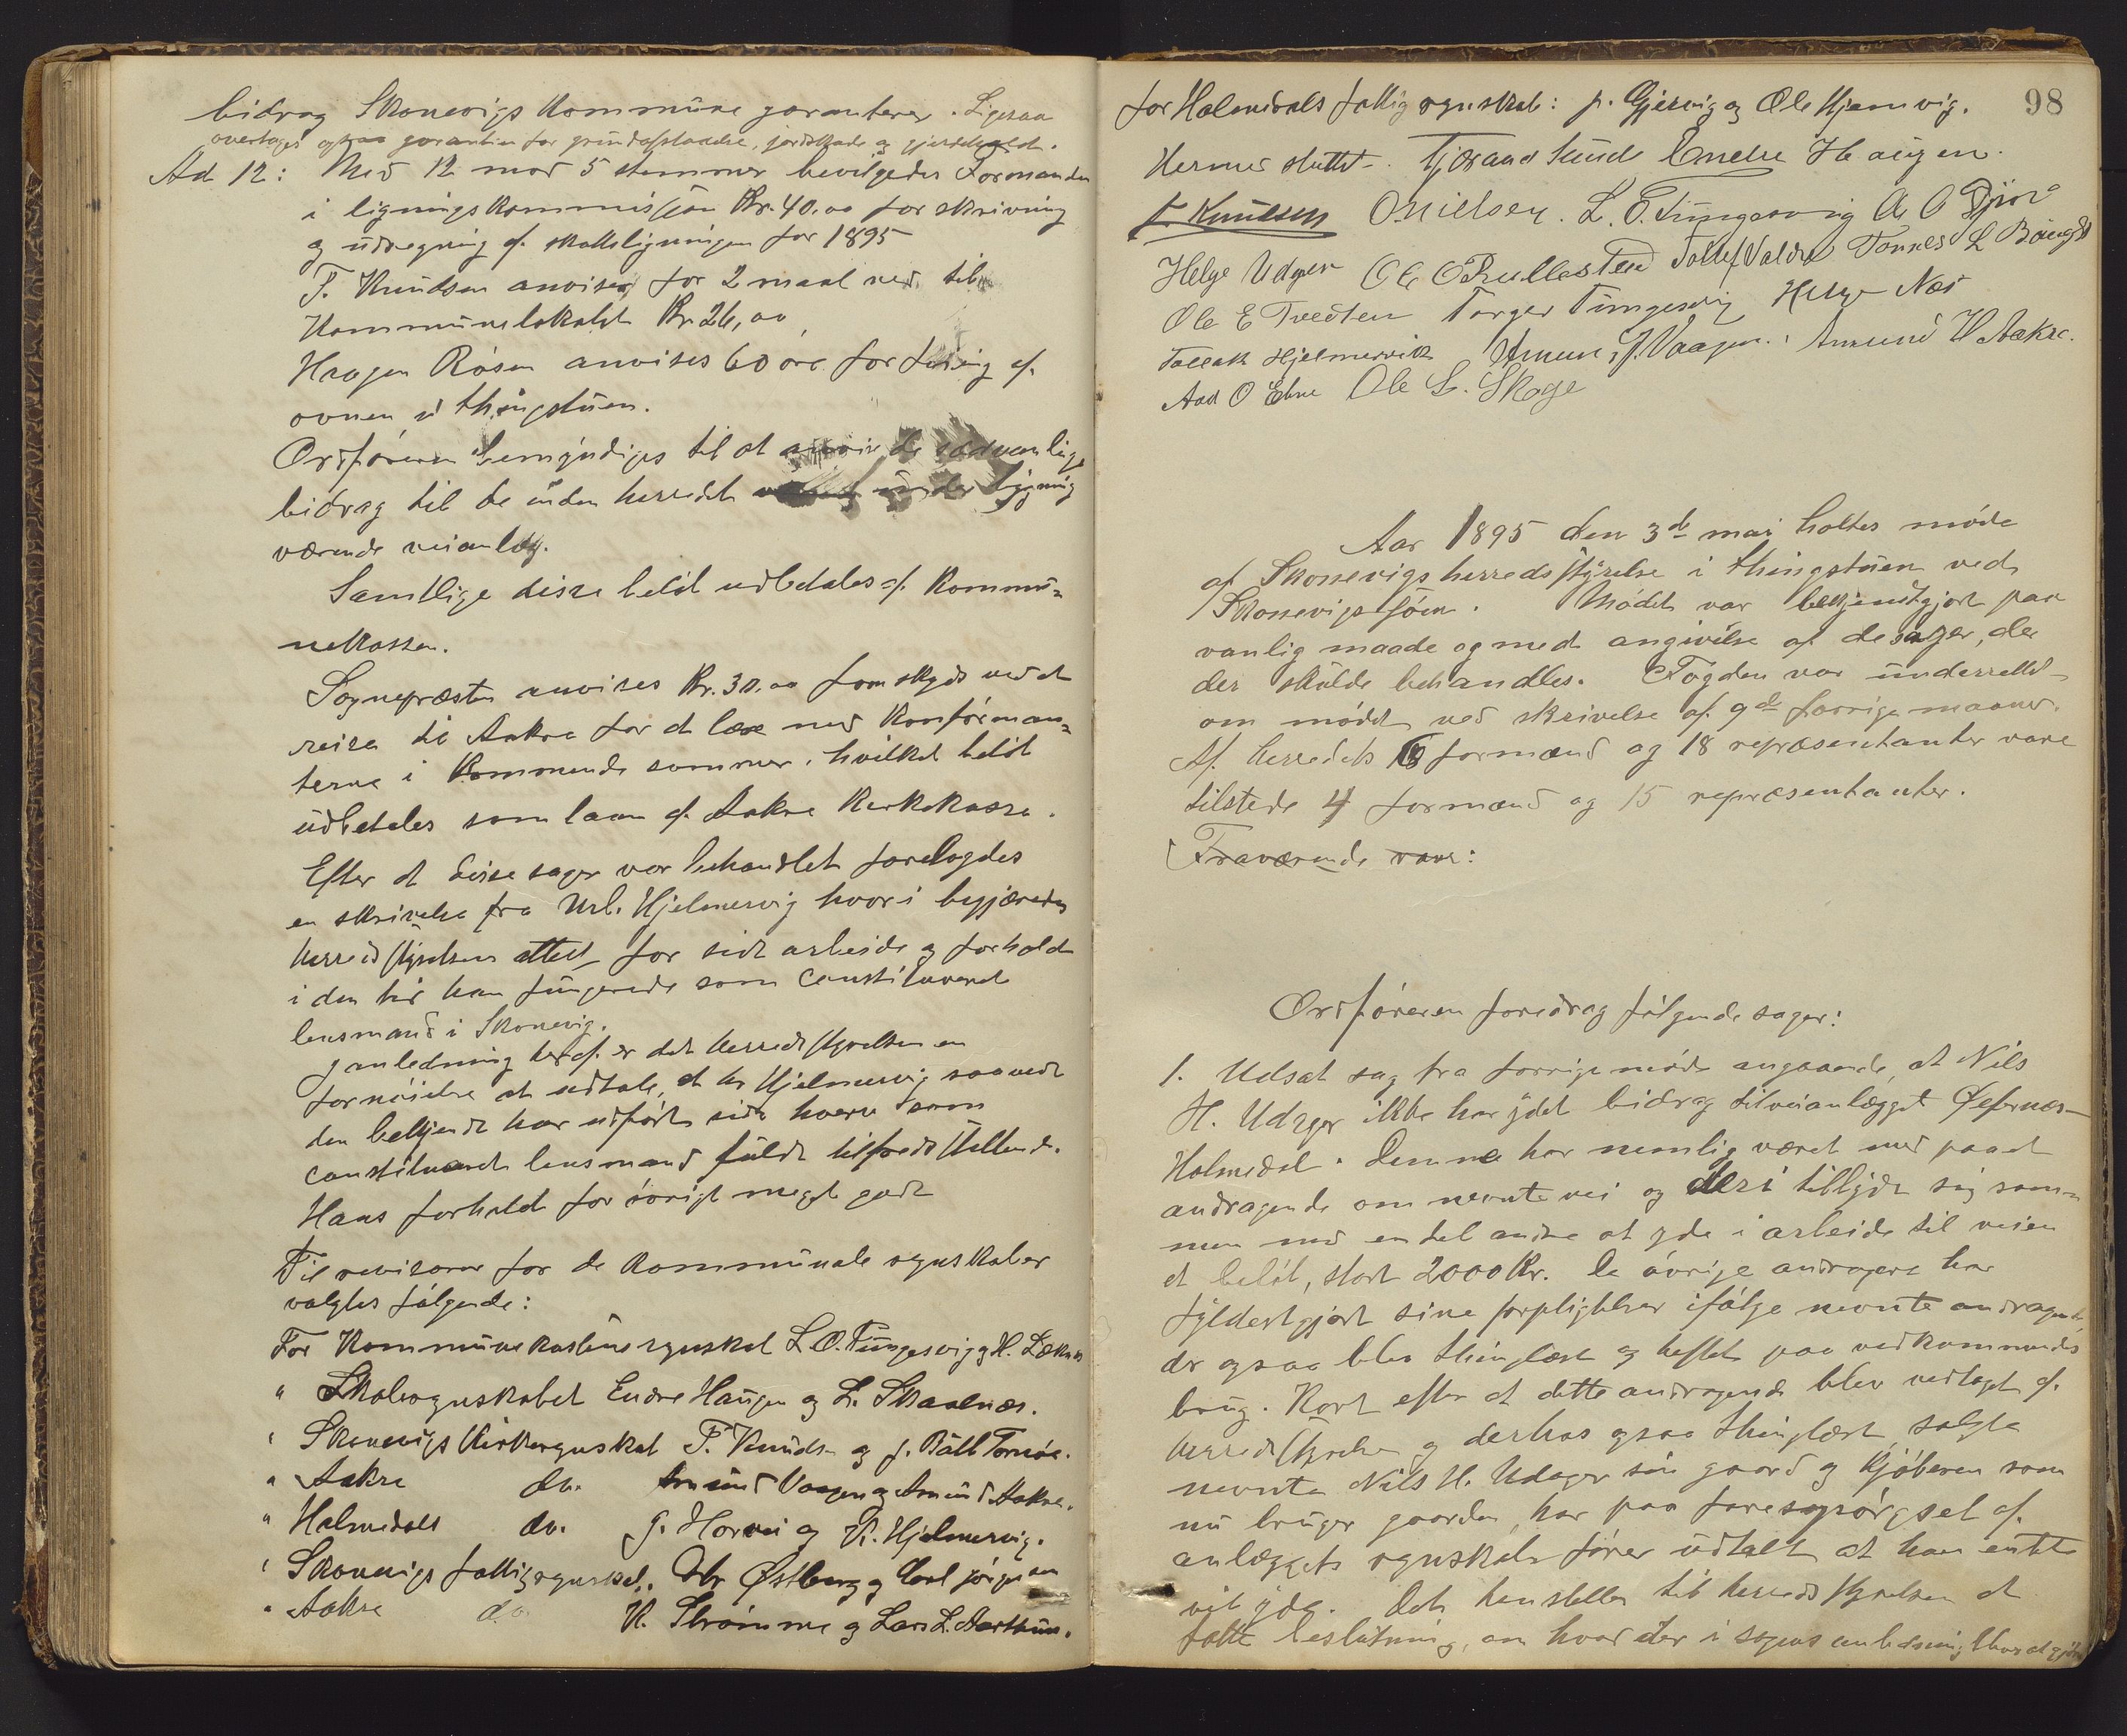 bidrag Skonevigs kommune garanterer. Ligesaa
overtages ogsaa garantien for grundafstaaelse, jordskade og gjerdehold.
Ad 12: Med 12 mod 5 stemmer bevilgedes Formanden
i ligningskommissjon Kr. 40.00 for skrivning
og udregning af skatteligningen for 1895
F. Knudsen anvises for 2 maal ved til
Kommunelokalet Kr. 26,00
Haagen Rösen anvises 60 öre for  af
ovnen i thingstuen.
Ordföreren bemyndiges til at anvise de sædvanlige
bidrag til de inden herredet under bygning
værende veianlæg.
Samtlige disse belöb udbetales af kommu-
nekassen.
Sognepræsten anvises Kr. 30.00 som skyds ved at
reise til Aakre for at læse med konforman-
terne i kommende sommer, hvilket belöb
udbetales som laan af Aakre Kirkekasse.
Efter at disse sager var behandlet forelagdes
en skrivelse fra Hjelmervig hvori begjæredes
herredsstyrelsens attest for sidt arbeide og forhold
i den tid han fungerede som constitueret
lensmand i Skonevig.
I anledning heraf er det herredsstyrelsen en
fornöielse at udtale, at hr Hjelmervig saavidt
den bekjendt har udfört sidt hverv som
constitueret lensmand fuldt tilfredsstillende.
Hans forhold for övrigt meget godt
Til revisorer for de kommunale regnskaber
valgtes fölgende:
For Kommunekassens regnskab L. O. Tungesvig og H. 
" Skoleregnskabet Endre Haugen og L. Skaalnæs.
" Skonevigs Kirkeregnskab F. Knudsen og J. Båll Tornöe.
" Aakre do. Amund Vaagen og Amund Aakre.
" Holmedals do. G. Horvei og K. Hjelmervig.
" Skonevigs fattigregnskab. Östberg og Carl Jörgensen
" Aakre do K. Strömme og Lars L. Aarthun.
98
for Holmedals fattigregnskab: P. Gjervig og Ole Hjemvig.
Hermed sluttet. Tjeraand Sunde Endre Haugen.
F. Knudsen O. Nielsen. L. O. Tungesvig A. O. 
Helge Udgaer Ole O Tollef Valdre Tønnes L 
Ole E Tvedten Torger Tungesvig Helge Næs
Tallak Hjelmervik Amund J. Vaagen. Amund H Aakre.
Aad O Ebne Ole L. Skoge
Aar 1895 den 3de mai holtes möde
af Skonevigs herredsstyrelse i thingstuen ved
Skonevigsjöen. Mödet var bekjendtgjort paa
vanlig maade og med angivelse af de sager, der
der skulde behandles. Fogden var underrettet
om mödet ved skrivelse af 9de forrige maaned.
Af herredets 6 formænd og 18 repræsentanter vare
tilstede 4 formænd og 15 repræsentanter.
Fraværende vare:
Ordföreren foredrag fölgende sager:
1. Udsat sag fra forrige möde angaaende, at Nils
H. Udager ikke har ydet bidrag til veianlægget Ölfernes-
Holmedal. Denne har nemlig været med paa et
andragende om nevnte vei og deri tilbyde sig sam-
men med en del andre at yde i arbeide til veien
et belöb, stort 2000 Kr. De övrige andragere har
fyldestgjort sine forpligtelser ifölge nevnte andragende,
der ogsaa blev thinglæst og heftet paa vedkommendes
brug. Kort efter at dette andragende blev vedtaget af
herredsstyrelsen og derhos ogsaa thinglæst, solgte
nevnte Nils H. Udager sin gaard og kjöberen som
nu bruger gaarden, har paa foresprögsel af
anlæggets regnskabsförer udtalt at han intet
vil yde. Det henstilles til herredsstyrelsen at
fatte beslutning, om hvad der i sagens anledning er at gjöre